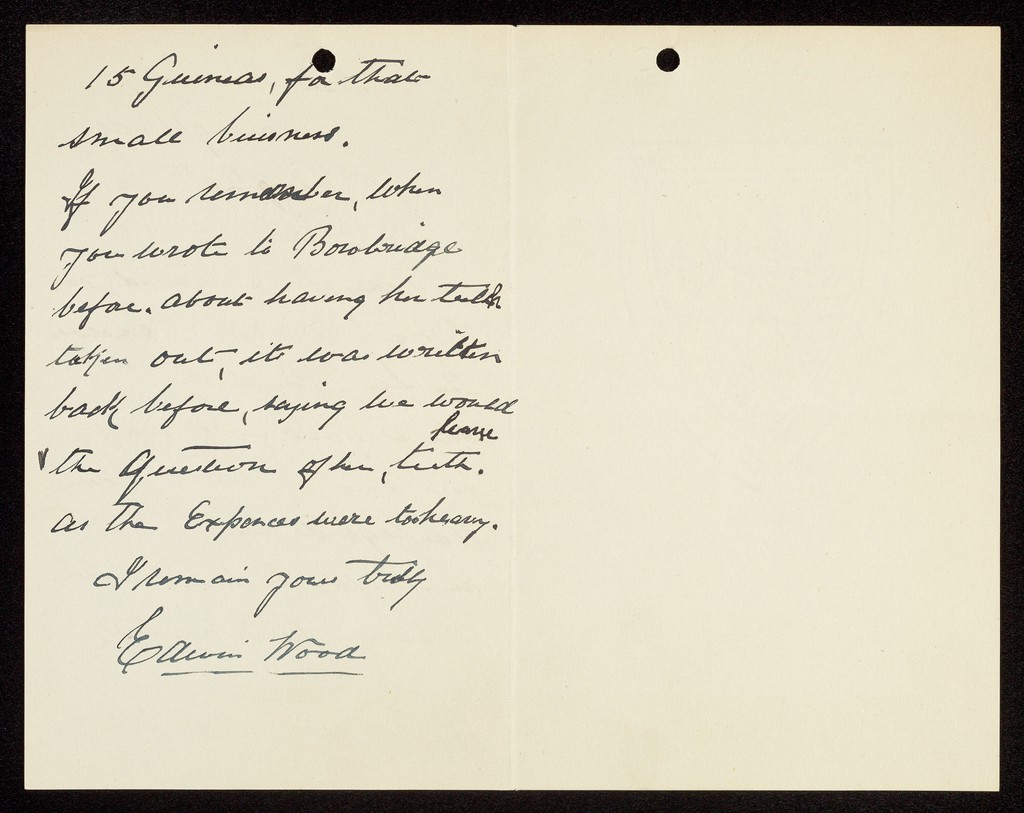 15 Guineas, for that
small buisness.
If you remember, when
you wrote to Bowbridge
before. about having her teeth
taken out, it was written
back before, saying we would
leave
the Question of her, teeth.
as the Expences were too heavy.
I remain yours truly
Edwin Wood